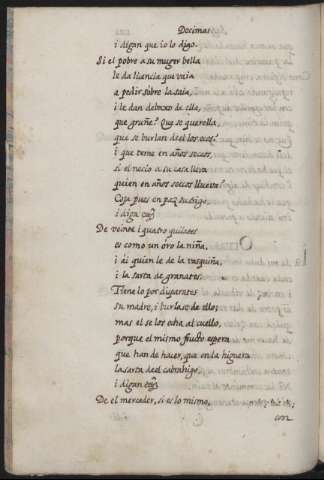 Decimas
i digan que io lo digo.
Si el pobre a su muger bella
le da licencia que vaia
a pedir sobre la saia,
i le dan debaxo de ella,
que gruñe? Que se querella,
que se burlan de el los ecos?
i que teme en años secos,
si el necio a su casa lleva
quien en años secos llueva?
Coja pues en paz su trigo,
i diga etc.
De veinte i quatro quilates
es como un oro la niña,
i ai quien le dè la vasquiña,
i la sarta de granates.
Tiene lo por disparates
su madre, i burlase de ello,
mas el se los echa al cuello,
porque el mismo fructo espera
que han de hacer, que en la higuera
la sarta de el cabrahigo,
i digan etc.
De el mercader, si es lo mismo,
con